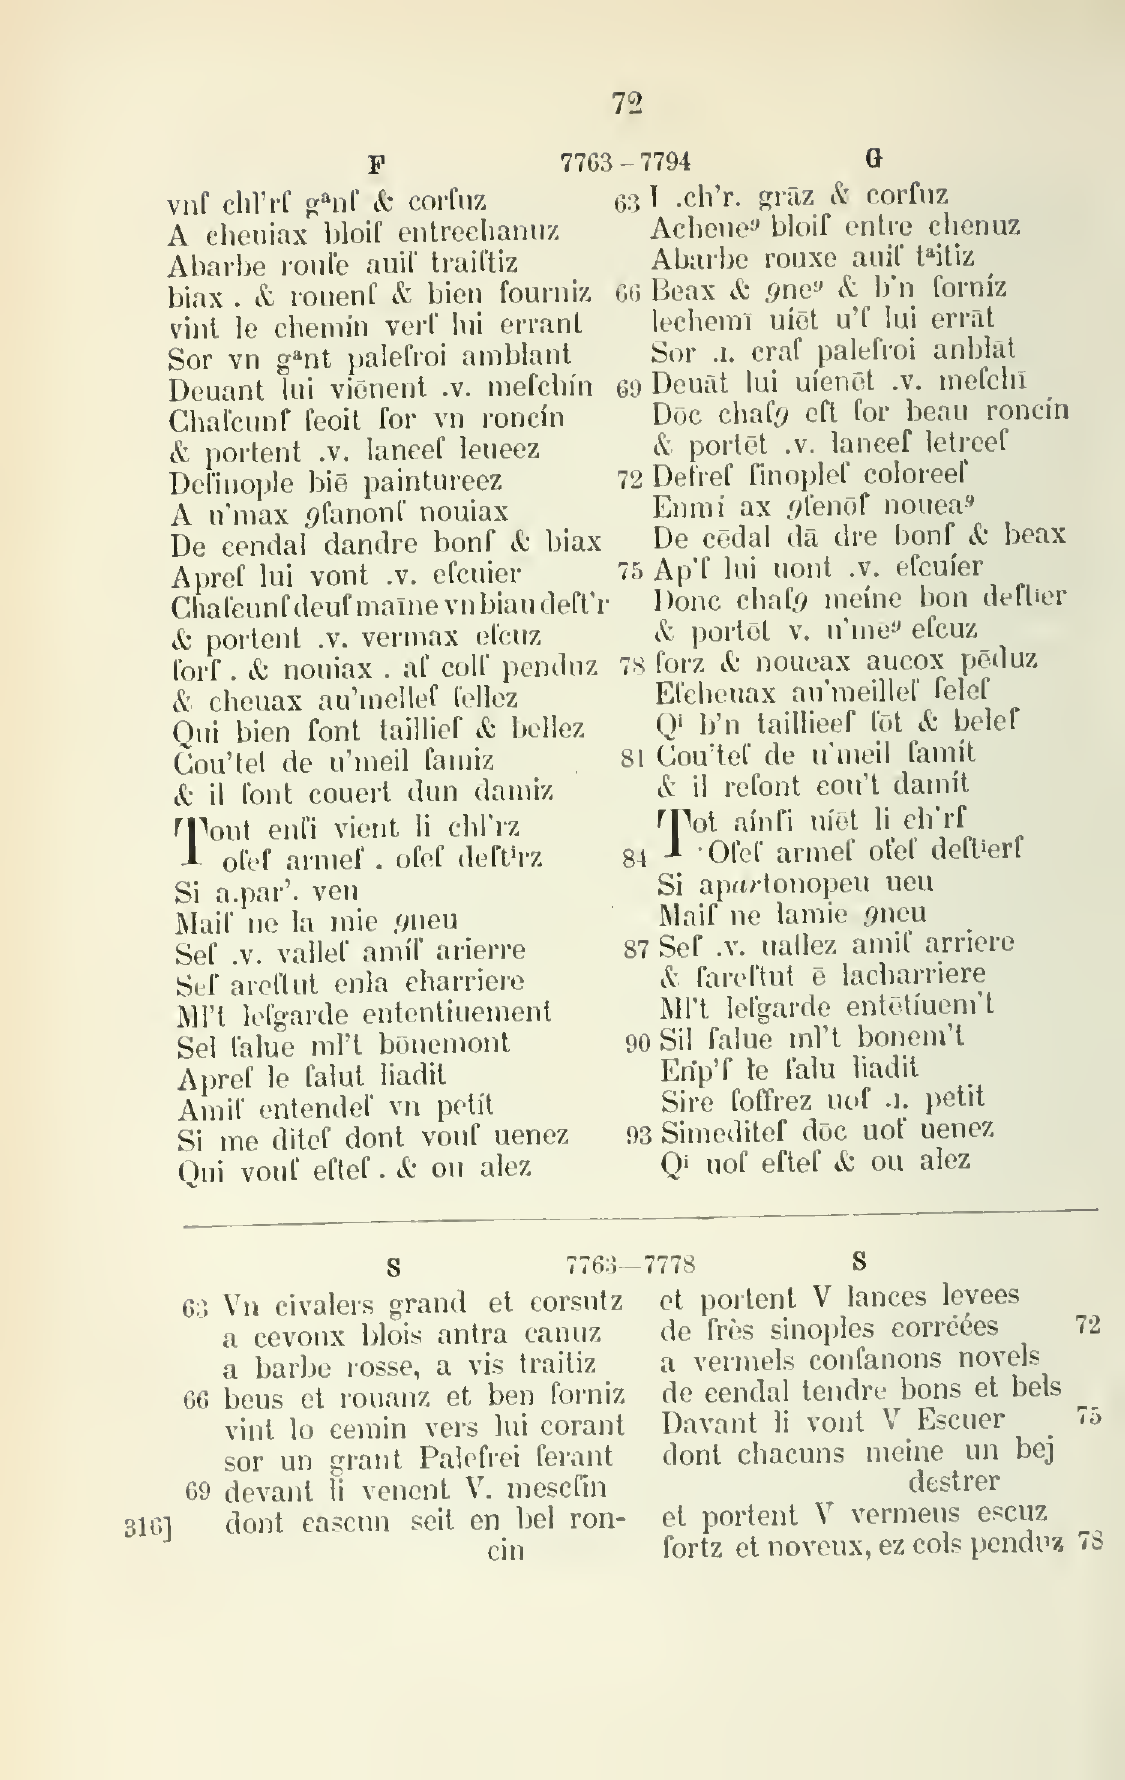 72
F 7763–7794 G
vnſ chl'rſ gᵃnſ & corſuz
A cheuiax bloiſ entrechanuz
Abarbe rouſe auiſ traiſtiz
biax . & rouenſ & bien fourniz
vint le chemin verſ lui errant
Sor vn gᵃnt palefroi amblant
Deuant lui viēnent .v. meſchín
Chaſcunſ ſeoit ſor vn roncín
& portent .v. lanceſ leueez
Deſinople biē paintureez
A u'max ꝯfanonſ nouiax
De cendal dandre bonſ & biax
Apreſ lui vont .v. eſcuier
Chaſcunſ deuſ maīne vn biau deſt'r
& portent .v. vermax eſcuz
forſ . & nouiax . aſ colſ penduz
& cheuax au'melleſ ſellez
Qui bien ſont taillieſ & bellez
Cou'tel de u'meil ſamiz
& il ſont couert dun damiz
Tout enſi vient li chl'rz
oſeſ armeſ . oſeſ deſtⁱrz
Si a.par'. veu
Maiſ ne la mie ꝯneu
Seſ .v. valleſ amíſ arierre
Seſ areſtut enla charriere
Ml't leſgarde ententiuement
Sel ſalue ml't bōnemont
Apreſ le ſalut liadit
Amiſ entendeſ vn petít
Si me diteſ dont vouſ uenez
Qui vouſ eſteſ . & ou alez
63 I .ch'r. grāz & corſuz
Acheueꝰ bloiſ entre chenuz
Abarbe rouxe auiſ tᵃitiz
66 Beax & ꝯneꝰ & b'n forníz
lechemī uiēt u'ſ lui errāt
Sor .ı. craſ palefroi anblāt
69 Deuāt lui uíenēt .v. meſchī
Dōc chaſꝯ eſt ſor beau roncín
& portēt .v. lanceſ letreeſ
72 Defreſ ſinopleſ coloreeſ
Enmí ax ꝯfenōſ noueaꝰ
De cēdal dā dre bonſ & beax
75 Ap'ſ lui uont .v. eſcuíer
Donc chaſꝯ meíne bon deſtier
& portēt v. u'meꝰ eſcuz
78 forz & noueax aucox pēduz
Eſcheuax au'meilleſ ſeleſ
Qⁱ b'n taillieeſ ſōt & beleſ
81 Cou'teſ de u'meil ſamít
& il reſont cou't damít
Tot aínſi uiēt li ch'rſ
84 Oſeſ armeſ oſeſ deſtⁱerſ
Si apartonopeu ueu
Maiſ ne lamie ꝯneu
87 Seſ .v. uallez amiſ arriere
& ſareſtut ē lacharriere
Ml't leſgarde entētíuem't
90 Sil ſalue ml't bonem't
Enp'ſ le ſalu liadit
Sire ſoffrez uoſ .ı. petit
93 Simediteſ dōc uoſ uenez
Qⁱ uoſ eſteſ & ou alez
S 7763—7778 S
63 Vn civalers grand et corsutz
a cevoux blois antra canuz
a barbe rosse, a vis traitiz
66 beus et rouanz et ben forniz
vint lo cemin vers lui corant
sor un grant Palefrei ferant
69 devant li venent V. mescfin
316] dont cascun seit en bel ron-
cin
et portent V lances levees
de frès sinoples corréées 72
a vermels confanons novels
de cendal tendre bons et bels
Davant li vont V Escuer 75
dont chacuns meine un bej
destrer
et portent V vermeus escuz
fortz et noveux, ez cols penduz 78